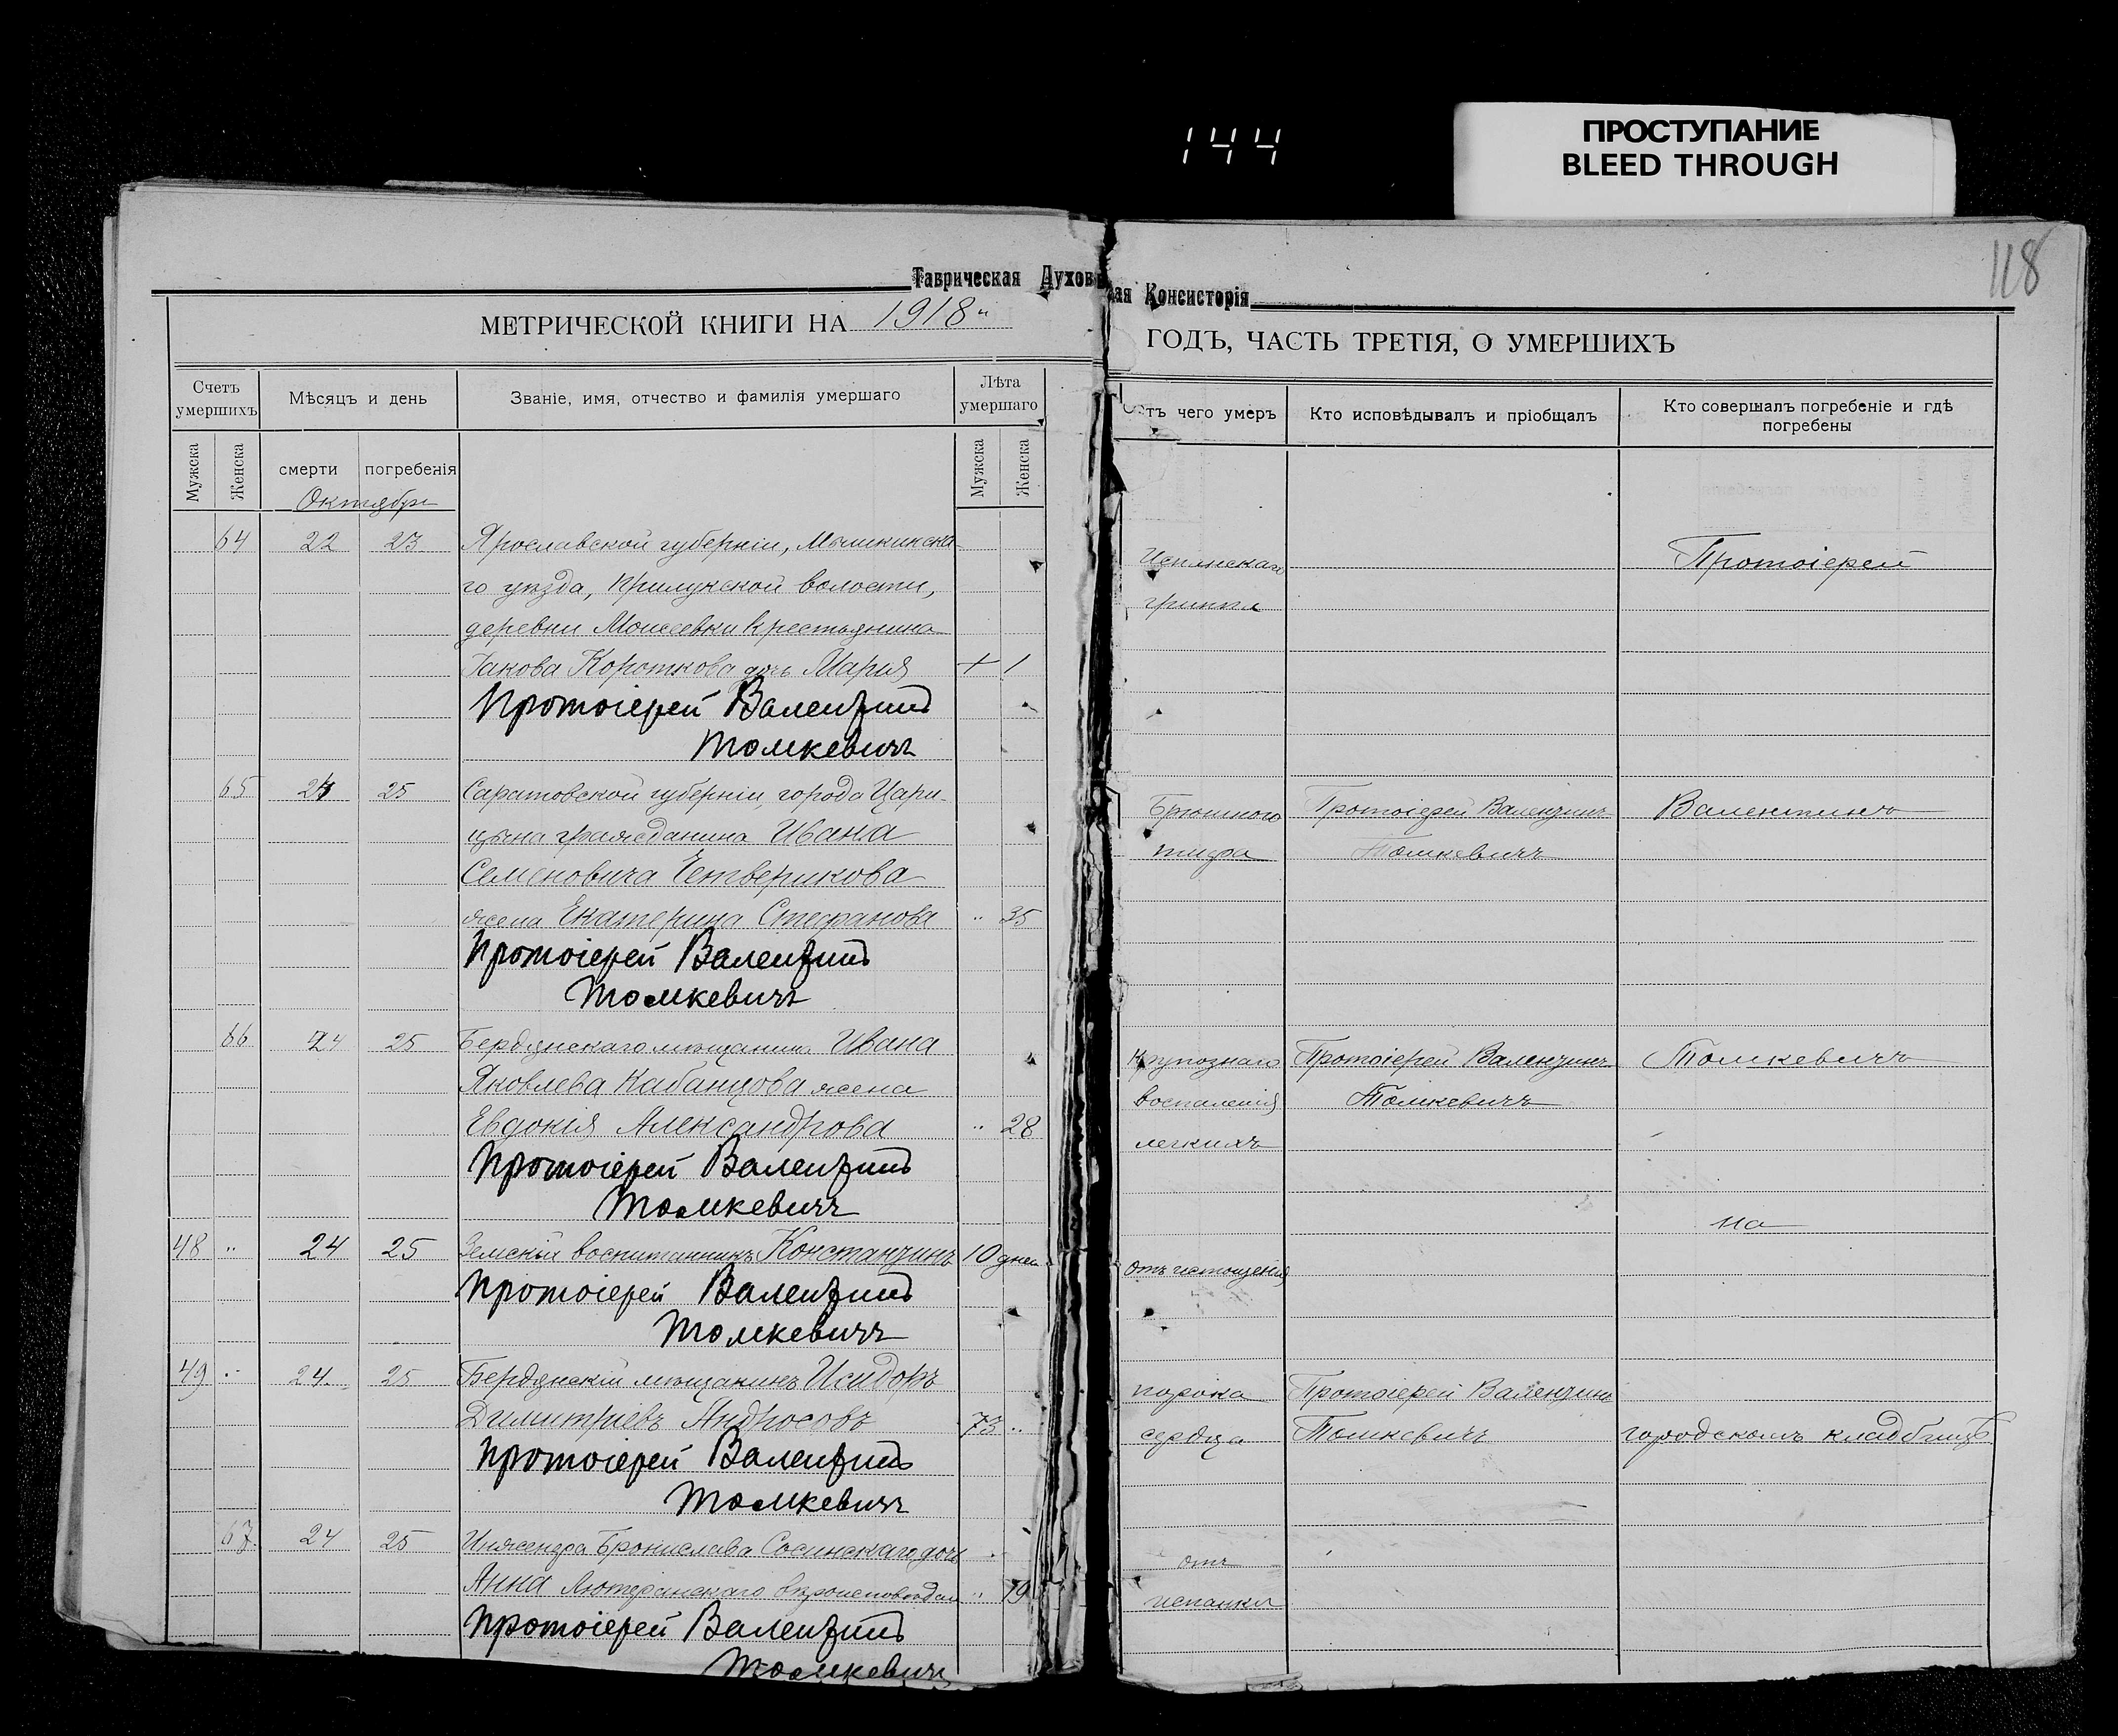 144
ПРОСТУПАНИЕ
BLEED THROUGH
118
Таврическая Духов
ая Консисторія
МЕТРИЧЕСКОЙ КНИГИ НА 1918
ГОДЪ, ЧАСТЬ ТРЕТІЯ, О УМЕРШИХЪ
Счетъ умершихъ
Мѣсяцъ и день
Званіе, имя, отчество и фамилія умершаго
Лѣта умершаго
тъ чего умеръ
Кто исповѣдывалъ и пріобщалъ
Кто совершалъ погребеніе и гдѣ погребены
Мужска Женска смерти погребенія Мужска Женска
Октября
64 22 23 Ярославской губерніи, Мышкинска-
го уѣзда, Прилукской волости,
деревни Моисеевки крестьянина
Іакова Короткова дочь Марія 1
Испанскаго
гриппа
Протоіерей
Протоіерей Валентинъ
Томкевичъ
65 25 Саратовской губерніи, города Цари-
цына гражданина Ивана
Семеновича Четверикова
жена Екатерина Стефанова " 35
Брюшного
тифа
Протоіерей Валентинъ
Томкевичъ
Валентинъ
Протоіерей Валентинъ
Томкевичъ
66 24 25 Бердянскаго мѣщанина Ивана
Яковлева Кабанцова жена
Евдокія Александрова " 28
Крупознаго
воспаленія
легкихъ
Протоіерей Валентинъ
Томкевичъ
Томкевичъ
Протоіерей Валентинъ
Томкевичъ
на
48 " 24 25 Земскій воспитанникъ Константинъ 10 дней
отъ истощенія
Протоіерей Валентинъ
Томкевичъ
49 " 24 25 Бердянскій мѣщанинъ Исидоръ
Димитріевъ Андросовъ 73 "
порока
сердца
Протоіерей Валентинъ
Томкевичъ
городскомъ кладбищѣ
Протоіерей Валентинъ
Томкевичъ
67 24 25 Инженера Бронислава Сосинскаго дочь
Анна Лютеранскаго " 19
отъ
испанки
Протоіерей Валентинъ
Томкевичъ